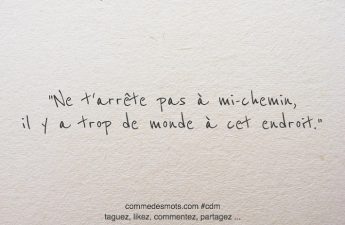 "Ne t'arrête pas à mi-chemin,
il y a trop de monde à cet endroit."
commedesmots.com #cdm
taguez, likez, commentez, partagez ...